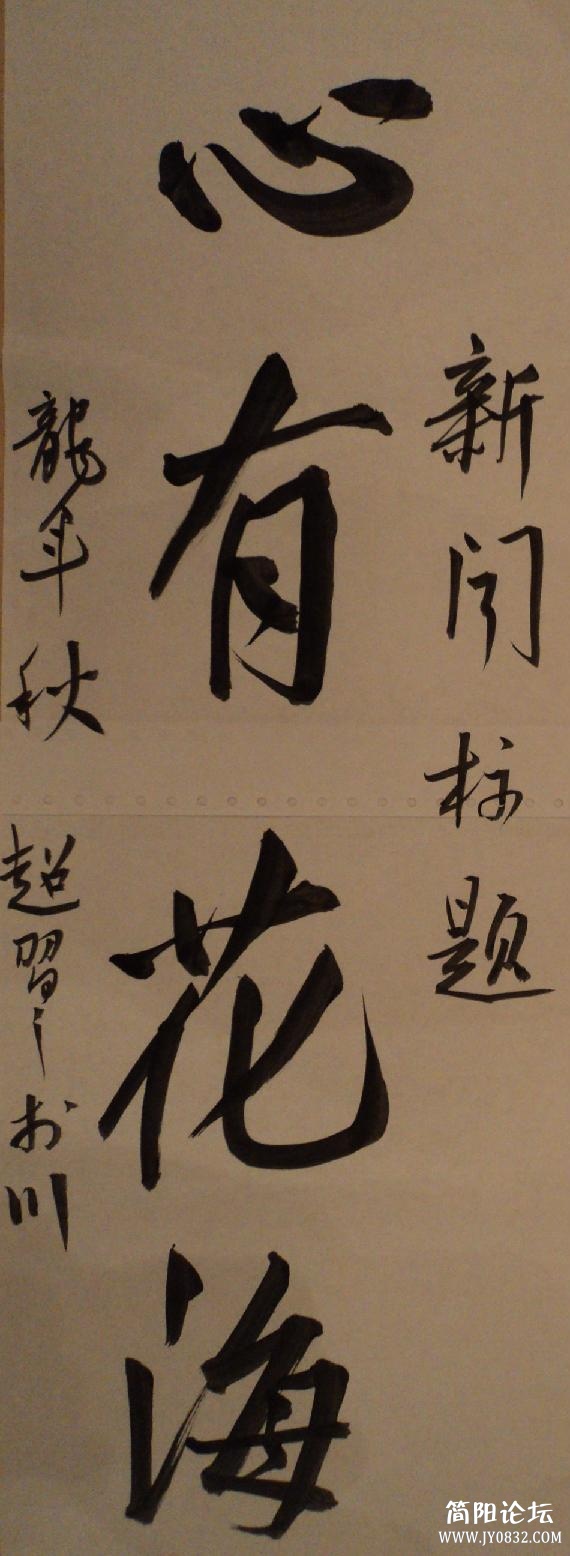 新闻标题
心有花海
龍年秋
超習之於川
简阳论坛
WWW.JY0832.COM